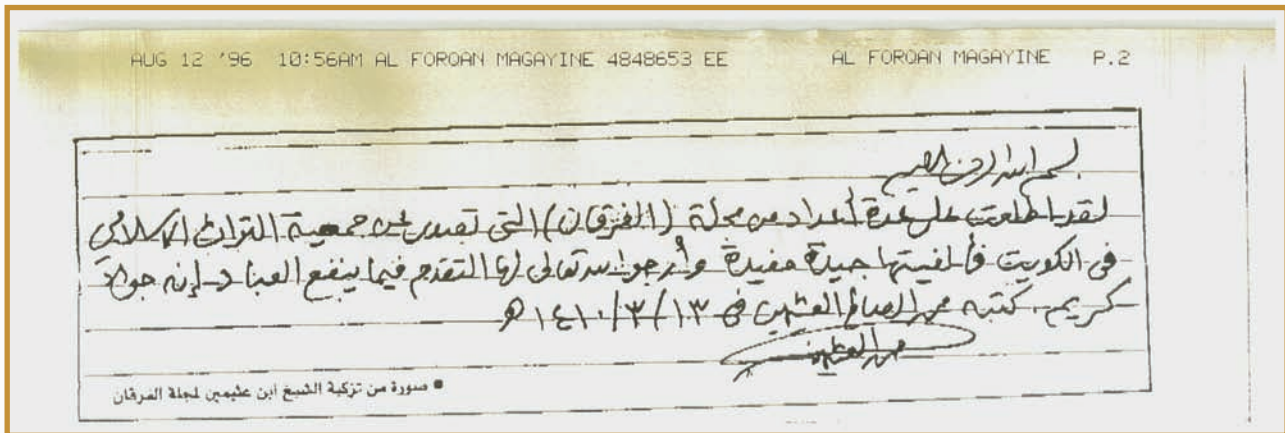 AUG 12 '96 10:56AM AL FOROAN MAGAYINE 4848653 EE AL FOROAN MAGAYINE P.2
بسم الله الرحمن الرحيم
لقد اطلعت على عدة أعداد من مجلة (الفرقان) التي تصدر عن جمعية التراث الإسلامي
في الكويت فألفيتها جيدة مفيدة وأرجو الله تعالى لها التقدم فيما ينفع العباد إنه جواد
كريم. كتبه محمد الصالح العثيمين في ١٣/٣/١٤١٠هـ
محمد العثيمين
صورة من تزكية الشيخ ابن عثيمين لمجلة الفرقان